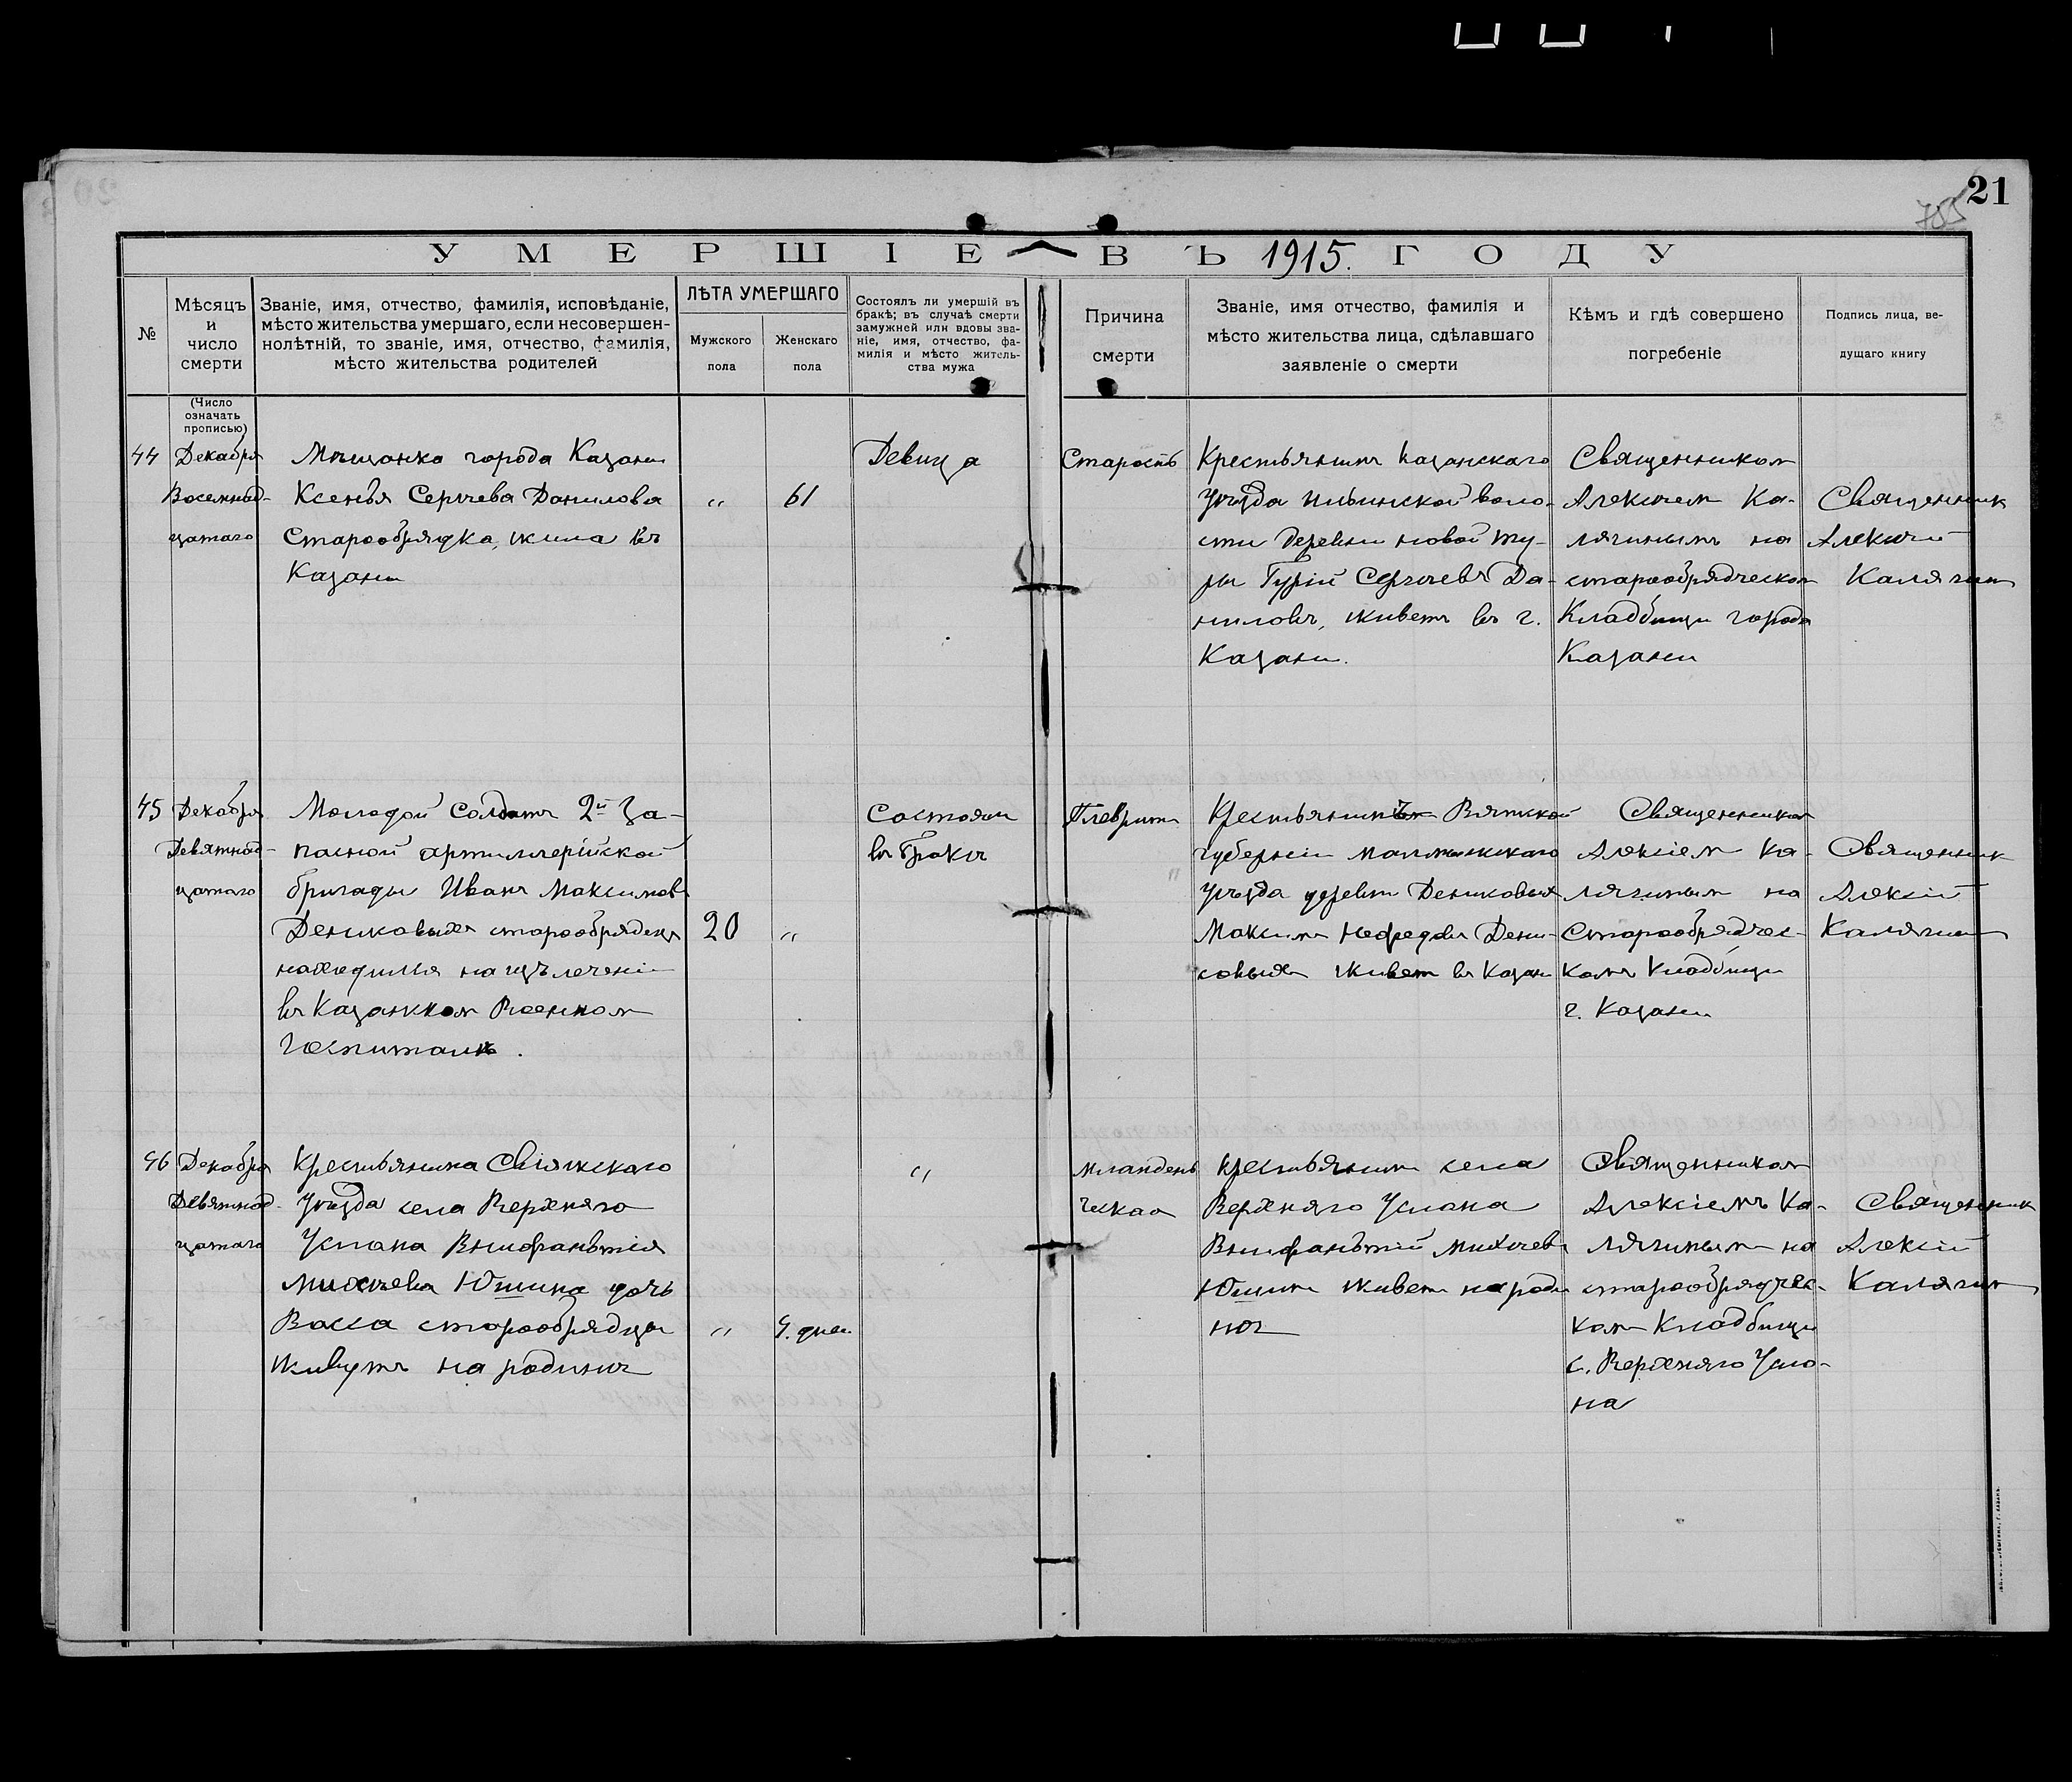 21
705
УМЕРШІЕ ВЪ 1915. ГОДУ
№
Мѣсяцъ
и
число
смерти
(Число
означать
прописью)
Званіе, имя, отчество, фамилія, исповѣданіе,
мѣсто жительства умершаго, если несовершен-
нолѣтній, то званіе, имя, отчество, фамилія,
мѣсто жительства родителей
ЛѢТА УМЕРШАГО
Мужского
пола
Женскаго
пола
Состоялъ ли умершій въ
бракѣ; въ случаѣ смерти
замужней или вдовы зва-
ніе, имя, отчество, фа-
милія и мѣсто житель-
ства мужа
Причина
смерти
Званіе, имя отчество, фамилія и
мѣсто жительства лица, сдѣлавшаго
заявленіе о смерти
Кѣмъ и гдѣ совершено
погребеніе
Подпись лица, ве-
дущаго книгу
44
Декабря
Восемнад-
цатаго
Мѣщанка города Казани
Ксенья Сергѣева Данилова
Старообрядка, жила въ
Казани
"
61
Девица
Старость
Крестьянинъ Казанскаго
Уѣзда воло-
сти деревни новой Ту-
ры Гурій Сергѣевъ Да-
ниловъ, живетъ въ г.
Казани.
Священником
Алексѣем Ка-
лягинымъ на
старообрядческом
Кладбищѣ города
Казани
Священник
Алексѣй
Калягин
45
Декабря
Девятнад-
цатаго
Молодой Солдатъ 2й За-
пасной артиллерійской
бригады Иванъ Максимов
Дениковыхъ старообрядецъ
находился на изълеченіи
въ Казанском Военном
Госпиталѣ.
20
"
Состоял
въ бракѣ
Плеврит
"
Крестьянинъ Вятской
губерніи Малмыжскаго
Уѣзда деревни Дениковых
Максим Нефедовъ Дени-
ковых живет въ Казани
Священником
Алексіем Ка-
лягиным на
Старообрядчес-
комъ Кладбищѣ
г. Казани
Священник
Алексій
Калягин
46
Декабря
Девятнад-
цатаго
Крестьянина Свіяжскаго
Уѣзда села Верхняго
Услона Внифантія
Михѣева Юшина дочь
Васса старообрядцы
живутъ на родинѣ
"
9. дней
"
Младен
ческая
Крестьянин села
Верхняго Услона
Внифантій Михѣевъ
Юшин живет на роди
нѣ
Священником
Алексіемъ Ка-
лягиным на
старообрядчес-
ком Кладбищѣ
с. Верхняго Усло-
на
Священник
Алексій
Калягин